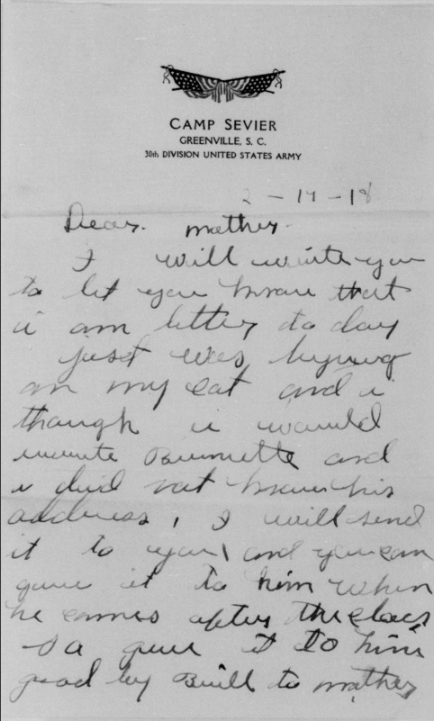 CAMP SEVIER
GREENVILLE, S. C.
30th DIVISION UNITED STATES ARMY
2-17-18
Dear. mother.
I will write you
to let you know that
i am better to day
just was lying
on my cot and i
though i would
write Burnette and
i did not know his
address, I will send
it to you, and you can
give it to him when
he comes after the
so give it to him
good by Bill to mother